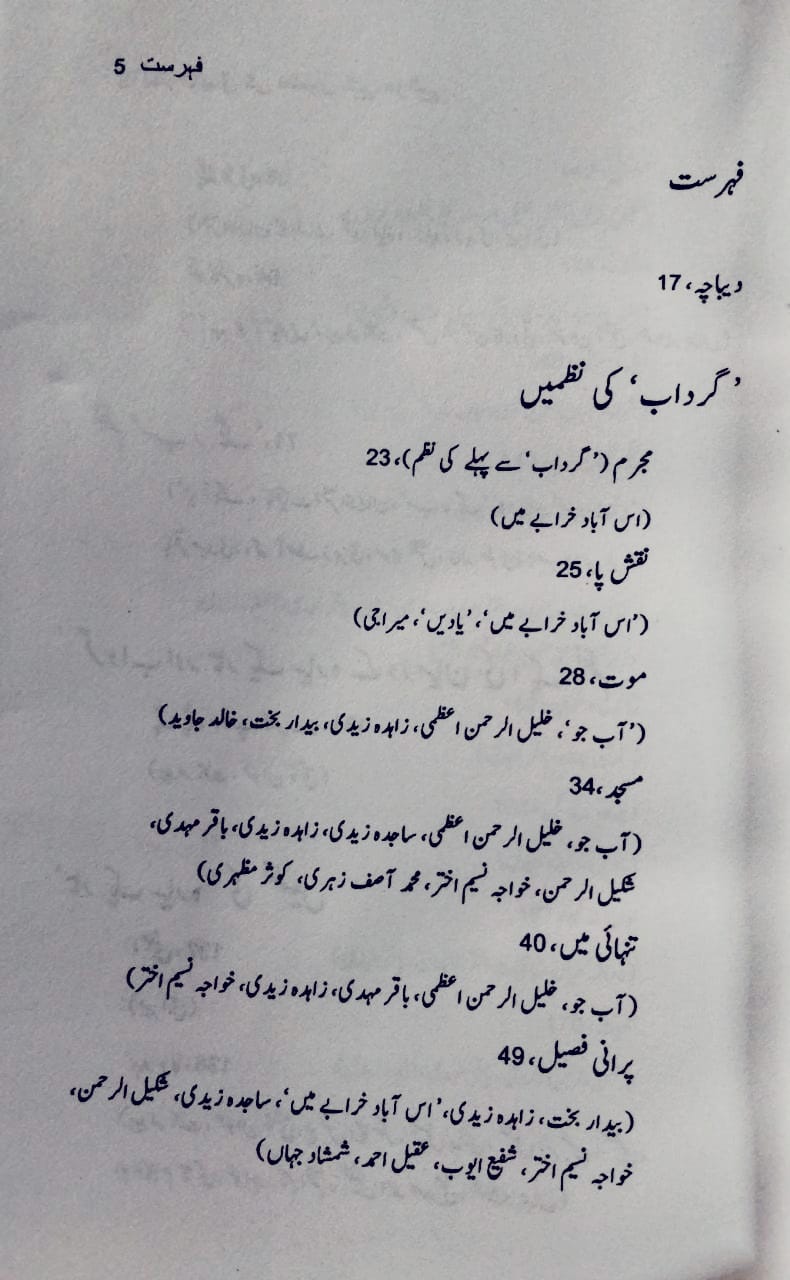 فہرست 5
فہرست
دیباچہ، 17
’گرداب‘ کی نظمیں
مجرم (’گرداب‘ سے پہلے کی نظم)، 23
(اس آباد خرابے میں)
نقش پا، 25
(’اس آباد خرابے میں‘، ’یادیں‘، میراجی)
موت، 28
(’آب جو‘، خلیل الرحمن اعظمی، زاہدہ زیدی، بیدار بخت، خالد جاوید)
مسجد، 34
(آب جو، خلیل الرحمن اعظمی، ساجدہ زیدی، زاہدہ زیدی، باقر مہدی،
شکیل الرحمن، خواجہ نسیم اختر، محمد آصف زہری، کوثر مظہری)
تنہائی میں، 40
(آب جو، خلیل الرحمن اعظمی، باقر مہدی، زاہدہ زیدی، خواجہ نسیم اختر)
پرانی فصیل، 49
(بیدار بخت، زاہدہ زیدی، ’اس آباد خرابے میں‘، ساجدہ زیدی، شکیل الرحمن،
خواجہ نسیم اختر، شفیع ایوب، عقیل احمد، شمشاد جہاں)